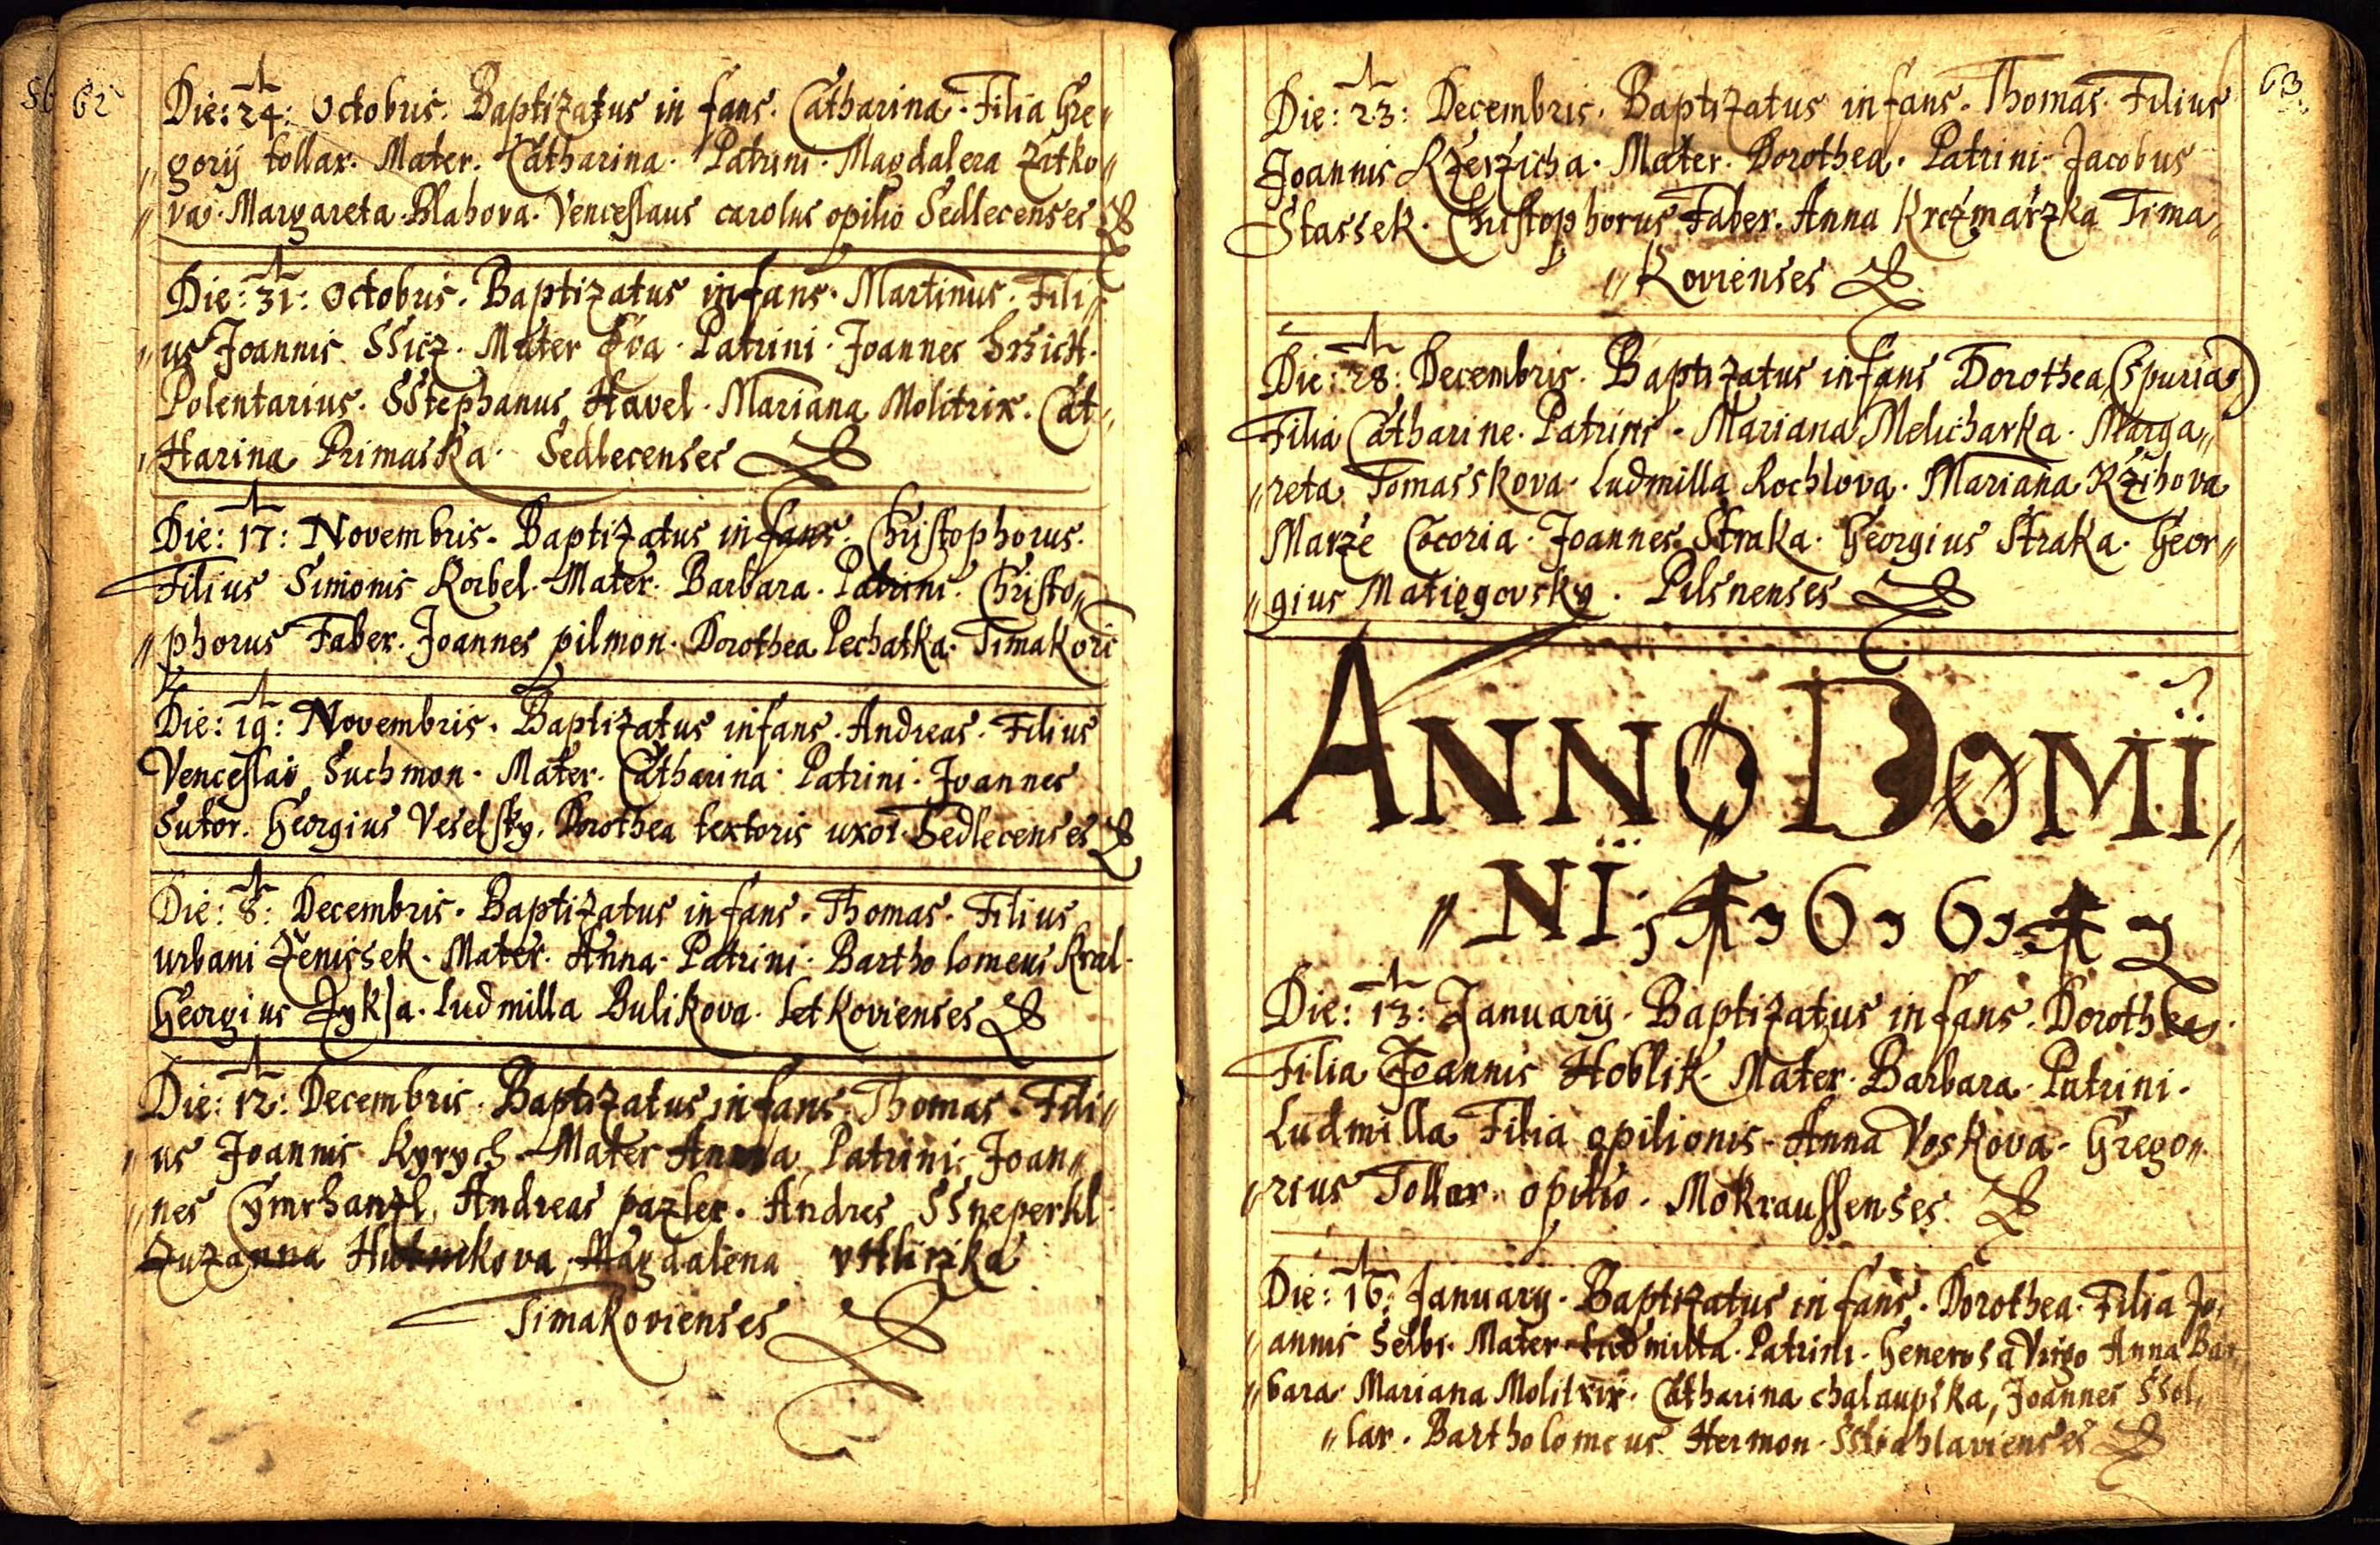 62
Die: 24: Octobris. Baptizatus in fans. Catharina. Filia Gre„
„gorij tollar. Mater. Catharina. Patrini. Magdalena Zatko„
„va. Margareta Blahova. Venceslaus carolus opilio Sedlecenses
Die: 31: Octobris. Baptizatus infans. Martinus. Fili„
„us Joannis SSicz. Mater Eva. Patrini. Joannes
Polentarius. SStephanus Havel. Mariana Molitrix. Cat„
„Harina Primaska. Sedlecenses
Die: 17: Novembris. Baptizatus infans. Christophorus.
Filius Simonis Korbel. Mater. Barbara. Patrini. Christo„
„phorus Faber. Joannes pilmon. Dorothea Pechatka. Timakovic
Die: 19: Novembris. Baptizatus infans. Andreas. Filius
Venceslai Suchmon. Mater. Catharina. Patrini. Joannes
Sutor. Georgius Veselsky. Dorothea textoris uxor Sedlecenses
Die: 8: Decembris. Baptizatus infans. Thomas. Filius
urbani Zenissek. Mater. Anna. Patrini. Bartholomeus Kral.
Georgius Zyksa. Ludmilla Bulikova. Letkovienses
Die: 12: Decembris. Baptizatus infans. Thomas. Fili„
„us Joannis Kyrych. Mater Anna Patrini. Joan„
„nes Cymrhanzl, Andreas pazler. Andres SSneperkl.
Zuzanna Hutnikova, Magdalena
Timakovienses
63
Die: 23: Decembris. Baptizatus infans. Thomas. Filius
Joannis Rzerzicha. Mater. Dorothea. Patrini. Jacobus
Stassek. Christophorus Faber. Anna Krczmarzka Tima„
„Kovienses
Die: 28: Decembris. Baptizatus infans Dorothea (Spuria)
Filia Catharine. Patrini. Mariana Melicharka. Marga„
„reta Tomasskova. Ludmilla Rochlova. Mariana Rzihova
Marze Cocoria. Joannes Straka. Georgius Straka. Geor„
„gius Matiegovsky. Pilsnenses
ANNO DOMI„
„NI, 1, 6, 6, 1,
Die: 13: Januarij. Baptizatus infans. Dorothea.
Filia Joannis Hoblik. Mater. Barbara. Patrini.
Ludmilla Filia opilionis. Anna Voskova. Grego„
„rius Tollar. opilio. Mokraussenses.
Die: 16: Januarij. Baptizatus infans. Dorothea. Filia Jo„
„annis Selbr. Mater Ludmilla. Patrini. Generosa Virgo Anna Bar„
„bara Mariana Molitrix. Catharina chalaupska, Joannes SSol„
„lar. Bartholomeus Hermon. SStiahlavienses